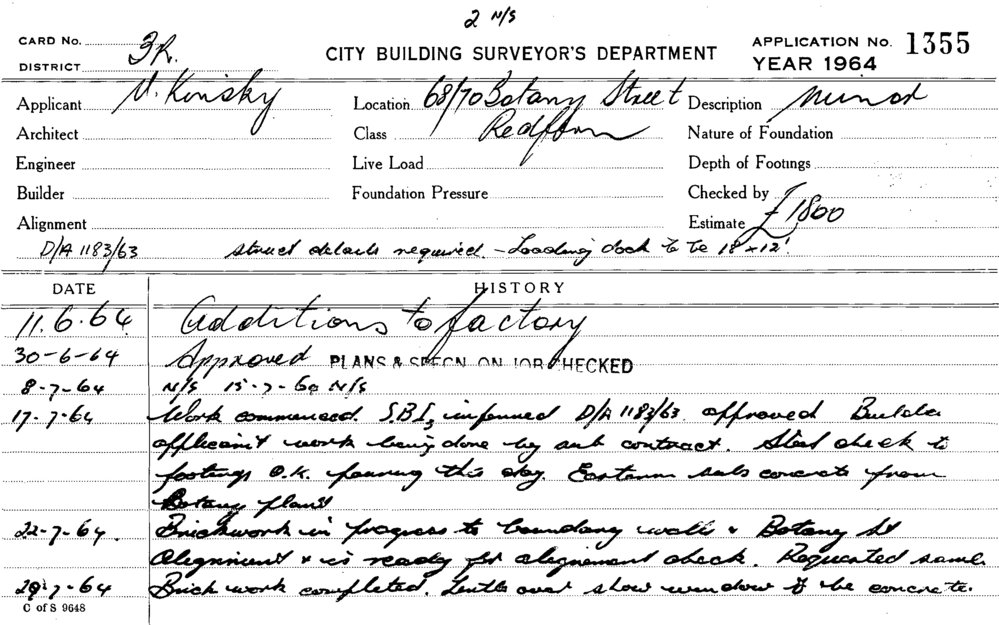 2 N/S
CARD No.
DISTRICT 3R.
CITY BUILDING SURVEYOR'S DEPARTMENT
APPLICATION No. 1355
YEAR 1964
Applicant V. Kinsky
Location 68/70 Botany Street
Description Minor
Architect
Class Redfern
Nature of Foundation
Engineer
Live Load
Depth of Footings
Builder
Foundation Pressure
Checked by
Alignment
Estimate £1800
D/A 1183/63 struct details required. - Loading dock to be 18' x 12'.
DATE HISTORY
11.6.64 Additions to factory
30-6-64 Approved PLANS & SPECN. ON JOB CHECKED
8-7-64 N/S 15-7-64 N/S
17-7-64 Work commenced. S.B.I. informed D/A 1183/63 approved Builder
applicant work being done by sub contract. Steel check to
footings O.K. pouring this day. Eastern subs concrete from
Botany plant
22-7-64. Brickwork in progress to boundary walls & Botany St
alignment & is ready for alignment check. Requested same.
29-7-64 Brick work completed. Lintle over show window to be concrete.
C of S 9648